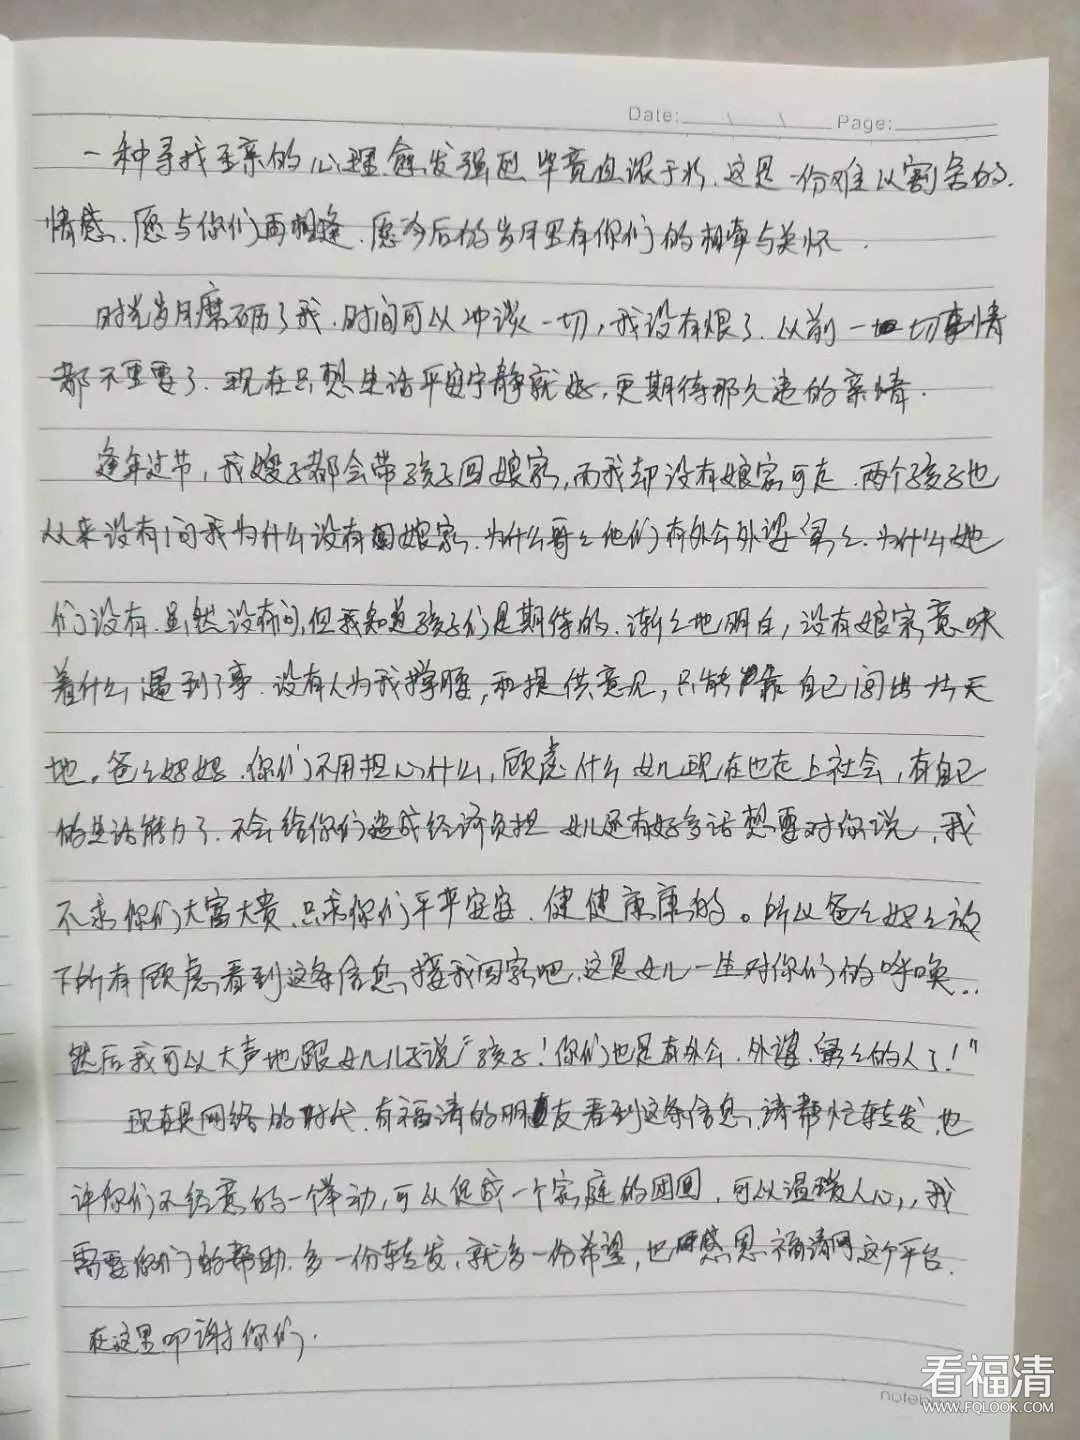 Date: \ \ Page:
一种寻找至亲的心理愈发强烈 毕竟血浓于水. 这是一份难以割舍的.
情感. 愿与你们再相逢. 愿今后的岁月里有你们的相牵与关怀.
时光岁月磨砺了我. 时间可以冲淡一切, 我没有恨了. 以前一切事情
都不重要了. 现在只想生活平安宁静就好, 更期待那久违的亲情.
逢年过节, 我嫂子都会带孩子回娘家, 而我却没有娘家可走. 两个孩子也
从来没有问我为什么没有回娘家. 为什么哥々他们有外公外婆舅々. 为什么她
们没有. 虽然没有问, 但我知道孩子们是期待的. 渐々地明白, 没有娘家意味
着什么 遇到了事. 没有人为我撑腰, 和提供意见, 只能靠自己闯出片天
地. 爸々妈妈. 你们不用担心什么, 顾虑什么 女儿现在也走上社会, 有自己
的生活能力了. 不会给你们造成经济负担 女儿还有好多话想要对你说, 我
不求你们大富大贵. 只求你们平平安安. 健健康康的。所以爸々妈々放
下所有顾虑, 看到这条信息, 接我回家吧, 这是女儿一生对你们的呼唤...
然后我可以大声地跟女儿儿子说“孩子! 你们也是有外公. 外婆. 舅々的人了!”
现在是网络的时代. 有福清的朋友看到这条信息, 请帮忙转发, 也
许你们不经意的一个举动, 可以促成一个家庭的团圆, 可以温暖人心,, 我
需要你们的帮助. 多一份转发, 就多一份希望, 也感恩. 福清网这个平台.
在这里叩谢你们.
看福清
WWW.FQLOOK.COM